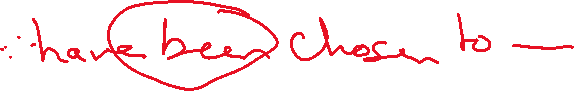 have been chosen to —